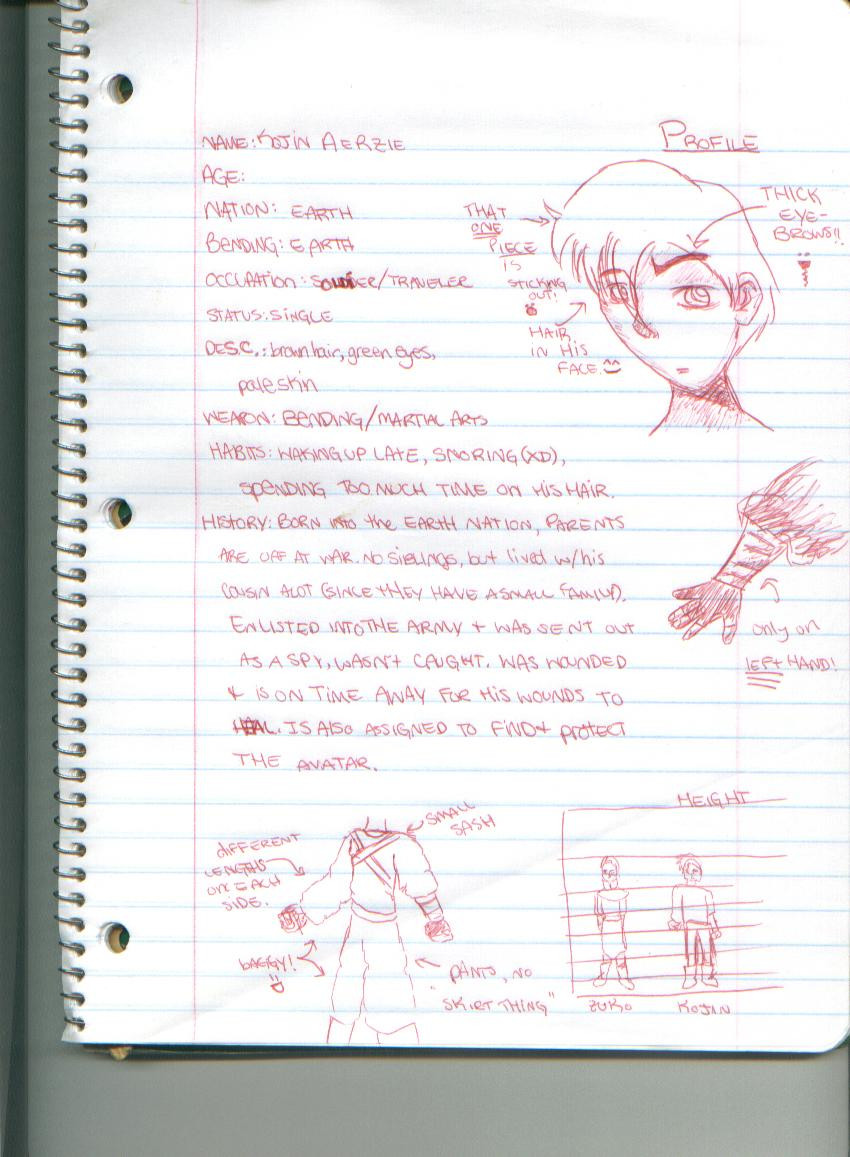 PROFILE
NAME: KOJIN AERZIE
AGE:
NATION: EARTH
BENDING: EARTH
OCCUPATION: SOLDIER/TRAVELER
STATUS: SINGLE
DESC.: brown hair, green eyes,
pale skin
WEAPON: BENDING/MARTIAL ARTS
HABITS: WAKING UP LATE, SNORING (XD),
SPENDING TOO MUCH TIME ON HIS HAIR.
HISTORY: BORN into the EARTH NATION, PARENTS
ARE OFF AT WAR. NO SIBLINGS, but lived w/his
COUSIN ALOT (SINCE THEY HAVE A SMALL FAMILY).
ENLISTED INTO THE ARMY + WAS SENT OUT
AS A SPY, WASN'T CAUGHT. WAS WOUNDED
+ IS ON TIME AWAY FOR HIS WOUNDS TO
HEAL. IS ALSO ASSIGNED TO FIND + protect
THE AVATAR.
THAT
ONE
PIECE
IS
STICKING
OUT!
HAIR
IN HIS
FACE ^^
THICK
EYE-
BROWS!!
only on
LEFT HAND!
SMALL
SASH
different
LENGTHS
ON EACH
SIDE.
BAGGY!
PANTS, NO
"SKIRT THING"
HEIGHT
ZUKO
KOJIN